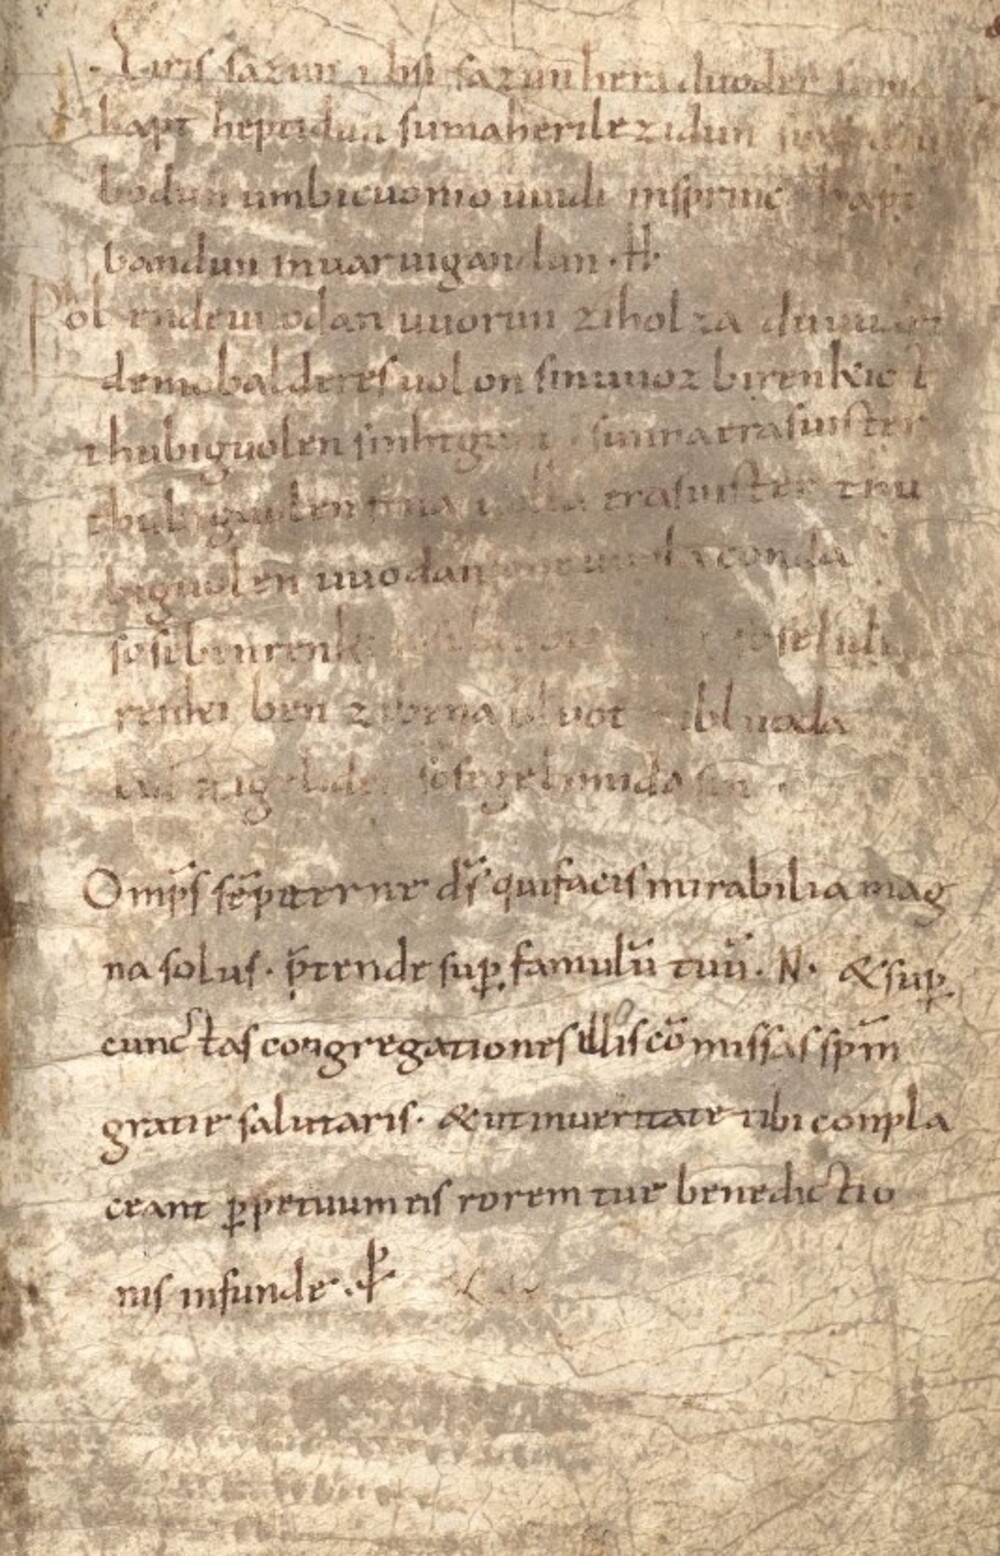 Eiris sazun idisi sazun hera duoder suma
hapt heptidun sumaherilezidun
bodun umbicuonio uuidi insprinc hapt
bandun inuar uigandun · H ·
Phol endeuuodan uuorun ziholza du uuart
demobalderesuolon sinuuoz birenkict
thubiguolen sinhtgunt · sunnaerasuister
thubiguolen friia uolla erasuister thu
biguolen uuodan uuolaconda
sosebenrenki soselidi
renki ben zibena bluot zibluoda
lid zigeliden sosegelimida sin ·
Omp̄s sēpiterne d̄s quifacis mirabilia mag
na solus · p̄tende sup̱ famulū tuū · N · &sup̱
cunctas congregationes illis cōmissas sp̄m
gratie salutaris · &utinueritate tibi conpla
ceant ꝑpetuum eis rorem tue benedictio
nis infunde · ꝑ